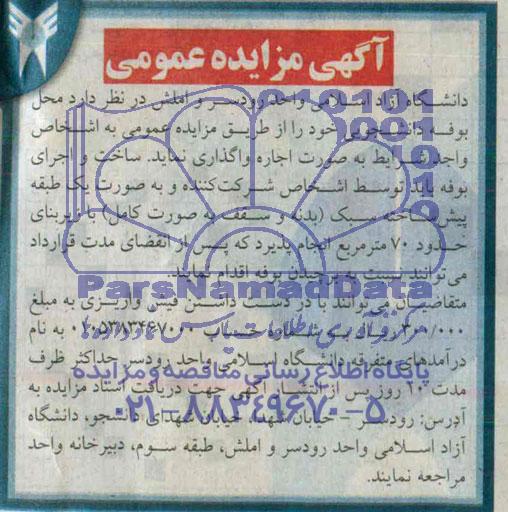 آگهی مزایده عمومی
دانشگاه آزاد اسلامی واحد رودسر و املش در نظر دارد محل
بوفه دانشجویی خود را از طریق مزایده عمومی به اشخاص
واجد شرایط به صورت اجاره واگذاری نماید. ساخت و اجرای
بوفه باید توسط اشخاص شرکت‌کننده و به صورت یک طبقه
پیش‌ساخته سبک (بدنه و سقف به صورت کامل) با زیربنای
حدود ۷۰ مترمربع انجام پذیرد که پس از انقضای مدت قرارداد
می‌توانند نسبت به برچیدن بوفه اقدام نمایند.
ParsNamadData
متقاضیان می‌توانند با در دست داشتن فیش واریزی به مبلغ
۳۰۰/۰۰۰ ریال به شماره حساب به نام
درآمدهای متفرقه دانشگاه اسلامی واحد رودسر حداکثر ظرف
پایگاه اطلاع رسانی مناقصه و مزایده
مدت ۱۰ روز پس از انتشار آگهی جهت دریافت اسناد مزایده به
۰۲۱-۸۸۳۴۹۶۷۰-۵
آدرس: رودسر - خیابان شهدا، خیابان شهدای دانشجو، دانشگاه
آزاد اسلامی واحد رودسر و املش، طبقه سوم، دبیرخانه واحد
مراجعه نمایند.